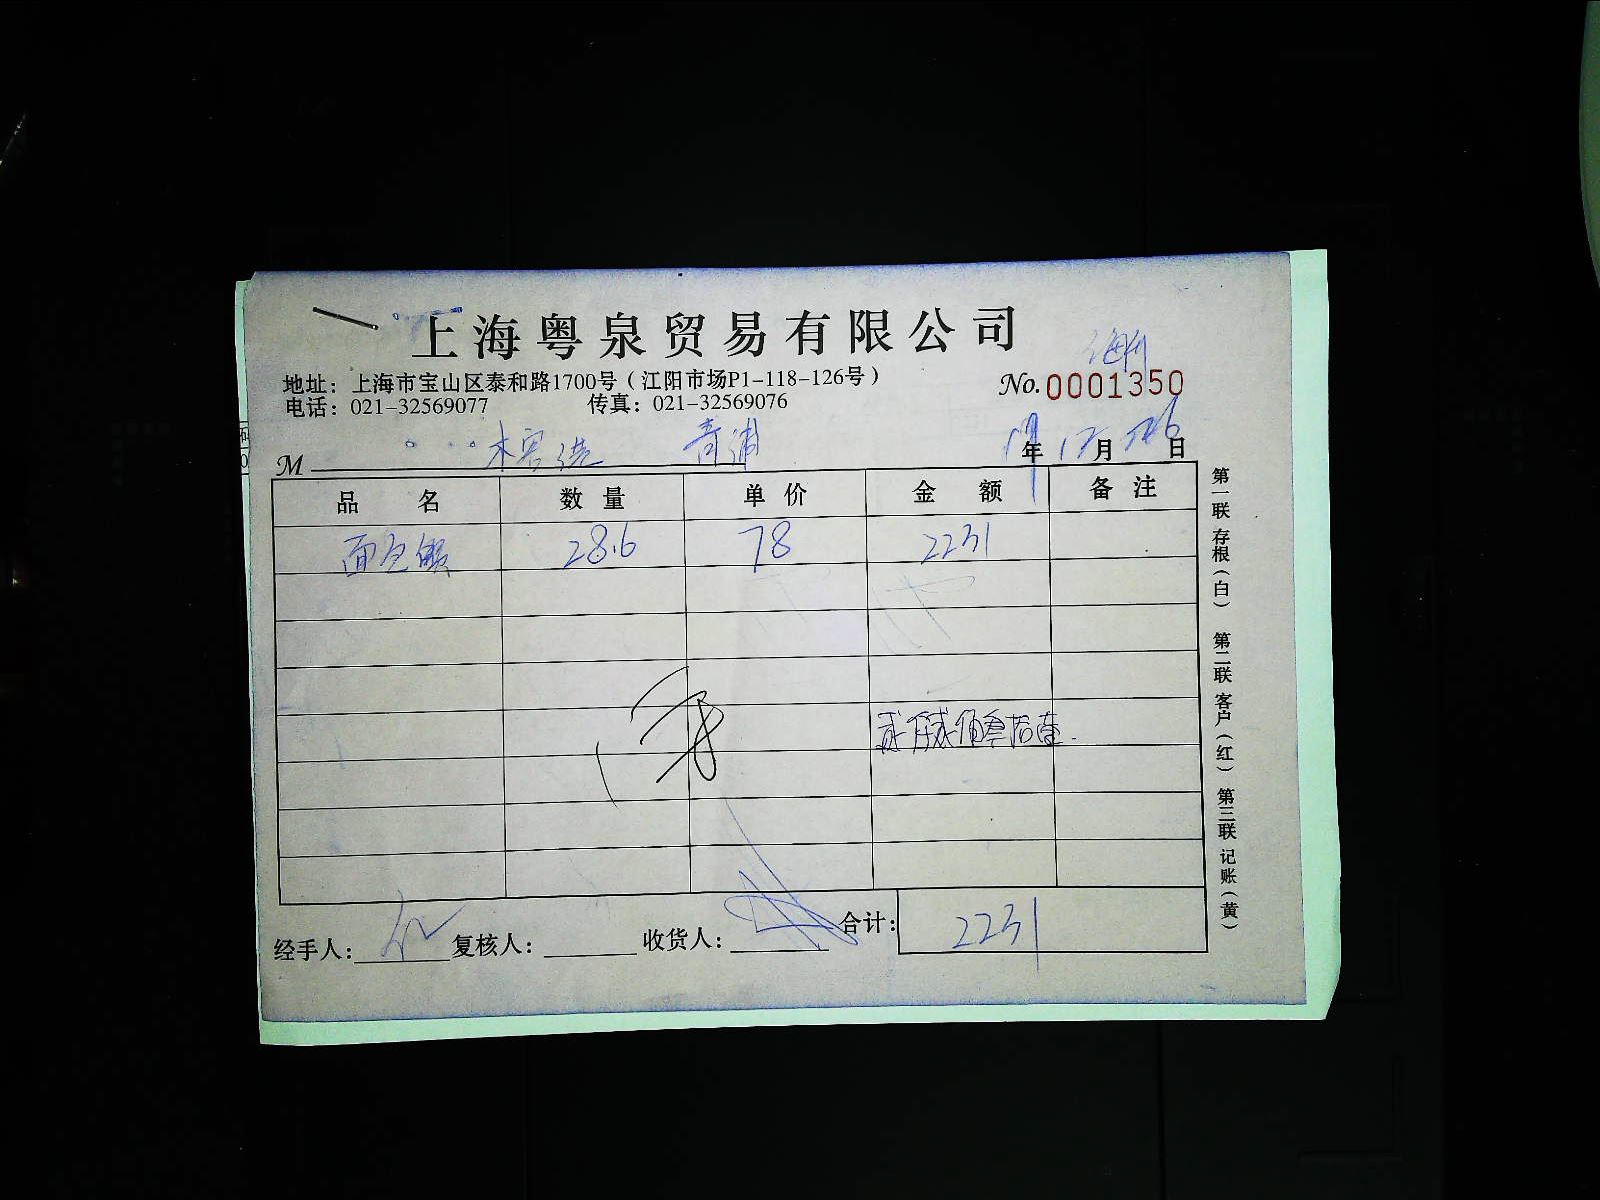 上海粤泉贸易有限公司
地址：上海市宝山区泰和路1700号（江阳市场P1-118-126号）
No.0001350
电话：021-32569077 传真：021-32569076
M 青浦 年 12月 26日
品名 数量 单价 金额 备注
面包蟹 28.6 78 2231
贰仟贰佰叁拾壹
经手人： 复核人： 收货人： 合计： 2231
第一联 存根（白） 第二联 客户（红） 第三联 记账（黄）